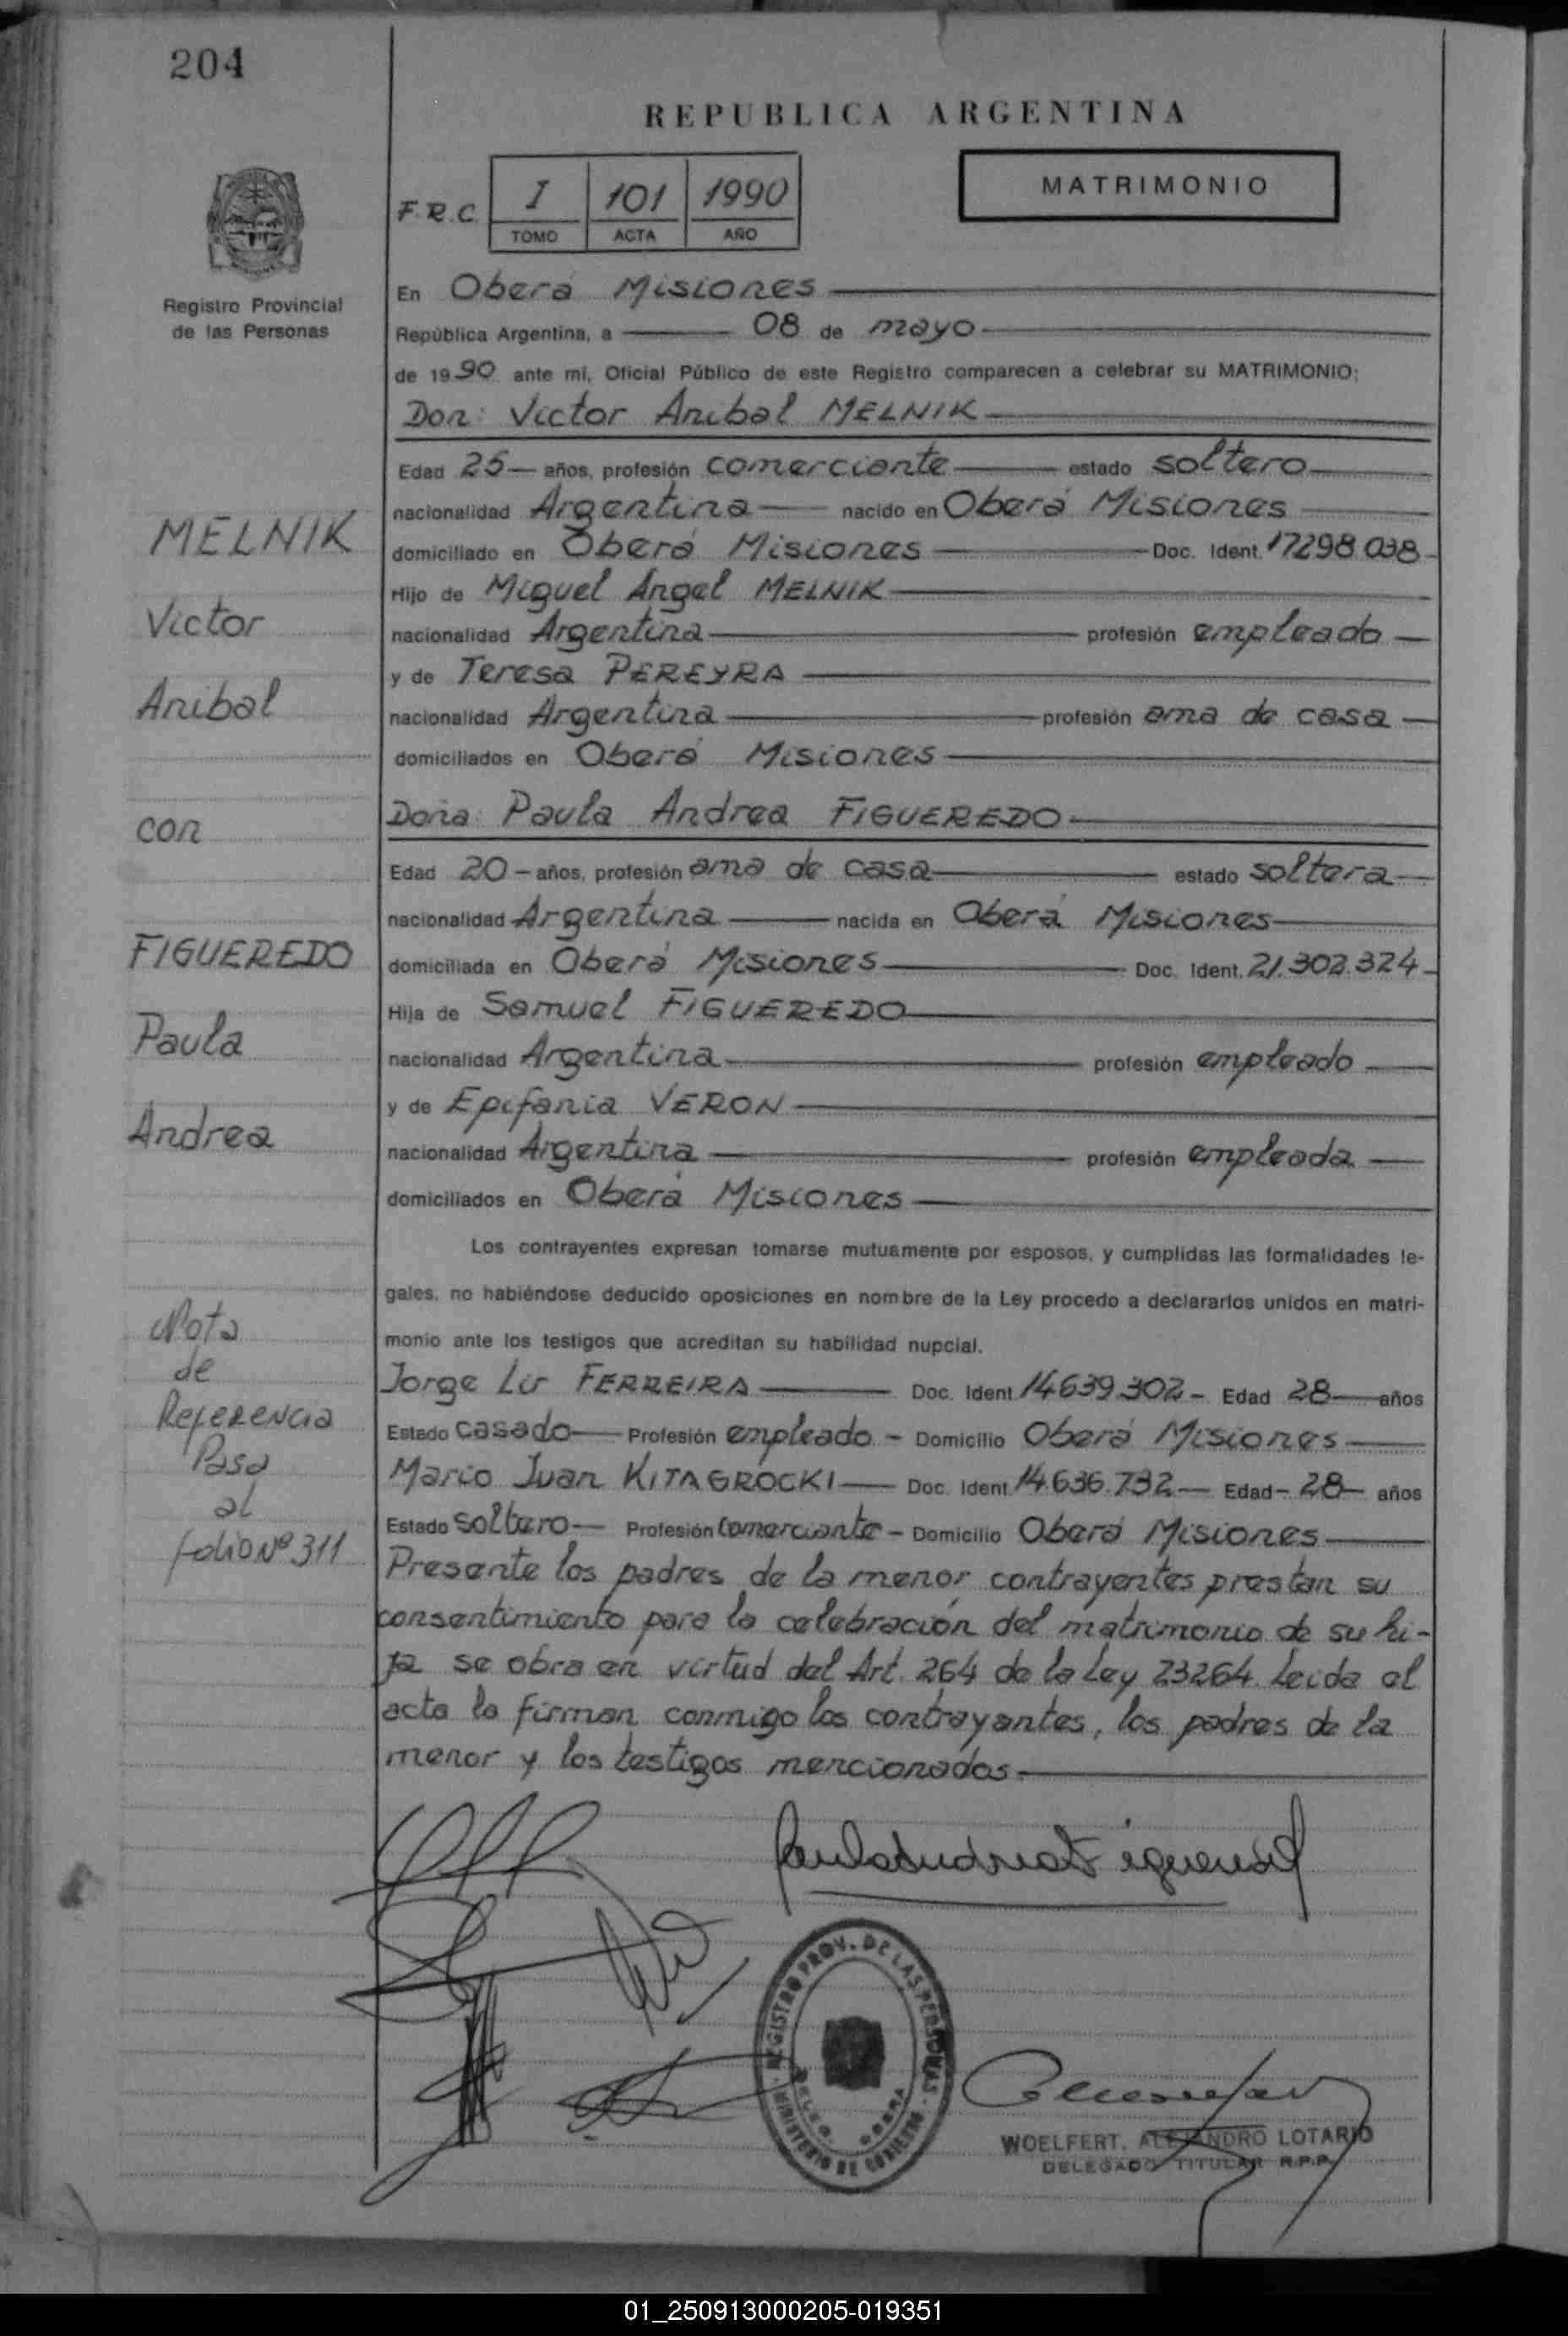 204
REPUBLICA ARGENTINA
F.R.C. I 101 1990
TOMO ACTA AÑO
MATRIMONIO
Registro Provincial
de las Personas
En Oberá Misiones
República Argentina, a 08 de mayo
de 1990 ante mí, Oficial Público de este Registro comparecen a celebrar su MATRIMONIO:
Don: Victor Anibal MELNIK
Edad 25 años, profesión comerciante estado soltero
nacionalidad Argentina nacido en Oberá Misiones
domiciliado en Oberá Misiones Doc. Ident. 17298.038
Hijo de Miguel Angel MELNIK
nacionalidad Argentina profesión empleado
y de Teresa PEREYRA
nacionalidad Argentina profesión ama de casa
domiciliados en Oberá Misiones
Doña: Paula Andrea FIGUEREDO
Edad 20 años, profesión ama de casa estado soltera
nacionalidad Argentina nacida en Oberá Misiones
domiciliada en Oberá Misiones Doc. Ident. 21.302.324
Hija de Samuel FIGUEREDO
nacionalidad Argentina profesión empleado
y de Epifania VERON
nacionalidad Argentina profesión empleada
domiciliados en Oberá Misiones
Los contrayentes expresan tomarse mutuamente por esposos, y cumplidas las formalidades le-
gales, no habiéndose deducido oposiciones en nombre de la Ley procedo a declararlos unidos en matri-
monio ante los testigos que acreditan su habilidad nupcial.
Jorge FERREIRA Doc. Ident. 14639.302 - Edad 28 años
Estado casado Profesión empleado - Domicilio Oberá Misiones
Mario Juan KITAGROCKI Doc. Ident. 14.636.732 Edad - 28 años
Estado soltero Profesión Comerciante - Domicilio Oberá Misiones
Presente los padres de la menor contrayentes prestan su
consentimiento para la celebración del matrimonio de su hi-
ja se obra en virtud del Art. 264 de la Ley 23264. Leida el
acta la firman conmigo los contrayentes, los padres de la
menor y los testigos mencionados
MELNIK
Victor
Anibal
con
FIGUEREDO
Paula
Andrea
Nota
de
Referencia
Pasa
al
folio Nº 311
REGISTRO PROV. DE LAS PERSONAS
MINISTERIO DE GOBIERNO
DELEG. OBERA
WOELFERT, ALEJANDRO LOTARIO
DELEGADO TITULAR R.P.P.
01_250913000205-019351